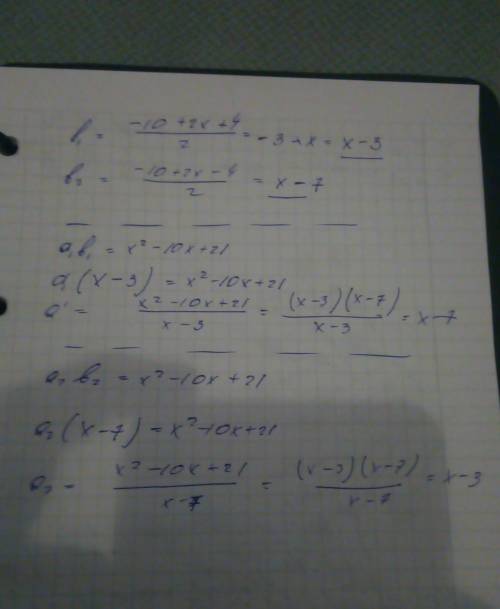 b₁ = (-10+2x+4)/2 = -3+x = x-3
b₂ = (-10+2x-4)/2 = x-7
a₁b₁ = x²-10x+21
a₁(x-3) = x²-10x+21
a₁ = (x²-10x+21)/(x-3) = ((x-3)(x-7))/(x-3) = x-7
a₂b₂ = x²-10x+21
a₂(x-7) = x²-10x+21
a₂ = (x²-10x+21)/(x-7) = ((x-3)(x-7))/(x-7) = x-3